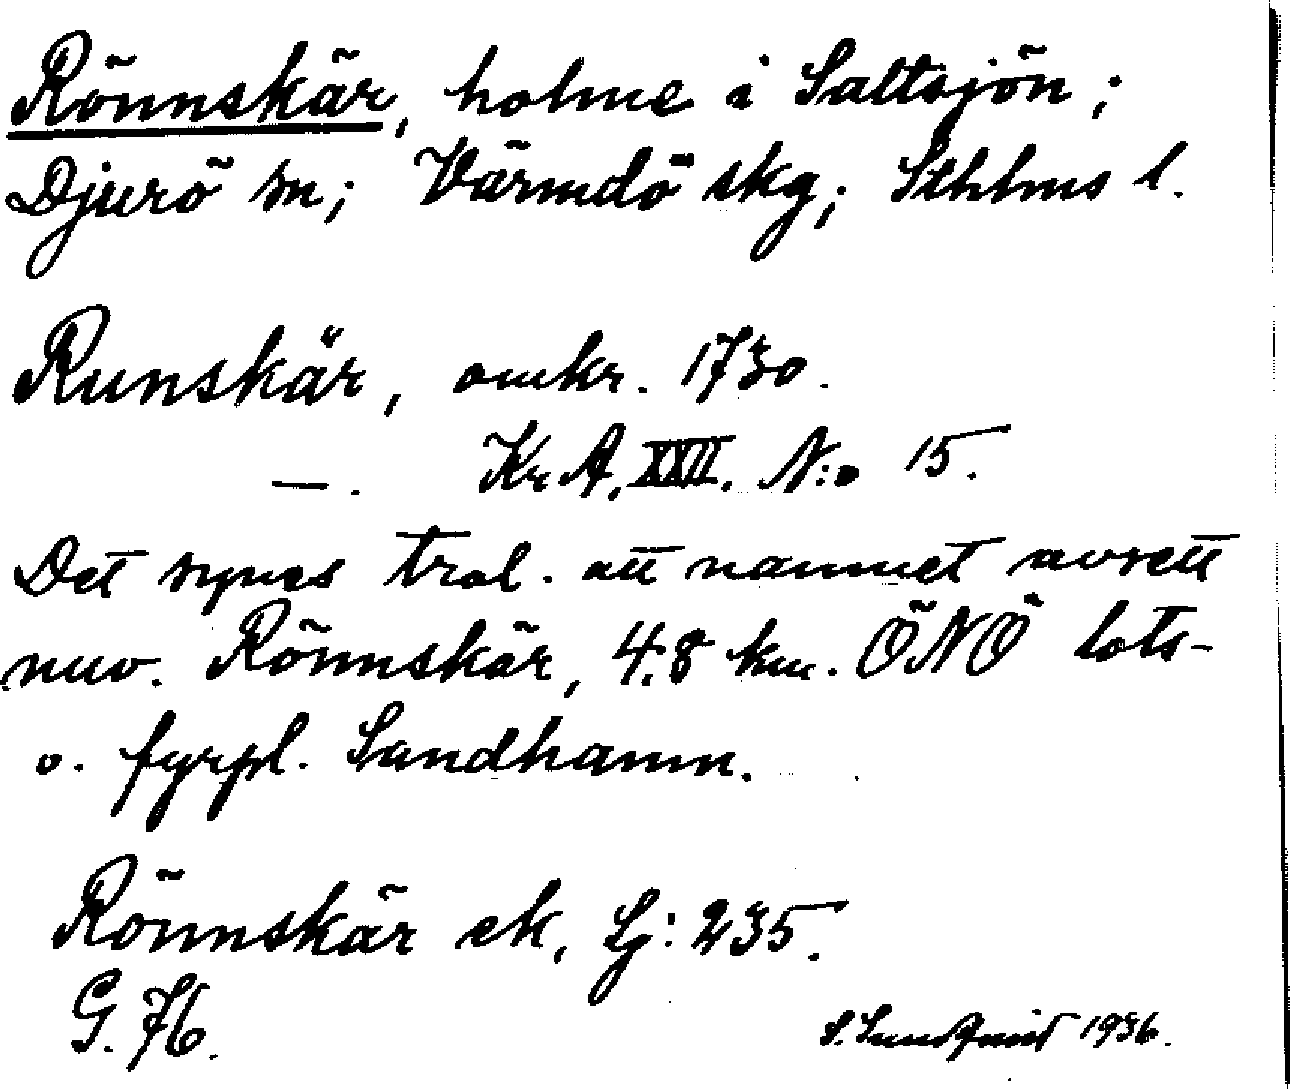 Rönnskär, holme i Saltsjön;
Djurö sn; Värmdö skg; Sthlms l.
Runskär, omkr. 1730.
—. Kr A. XXII. N:o 15.
Det synes trol. att namnet avsett
nuv. Rönnskär, 4.8 km. ÖNÖ lots-
o. fyrpl. Sandhamn.
Rönnskär ek, Sj: 235.
G. 76.
S. Sundqvist 1936.